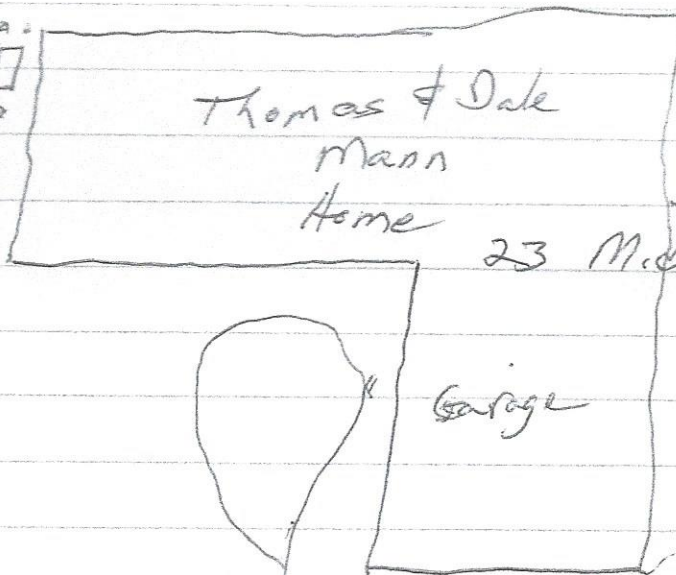 Thomas & Dale
Mann
Home
23
Garage